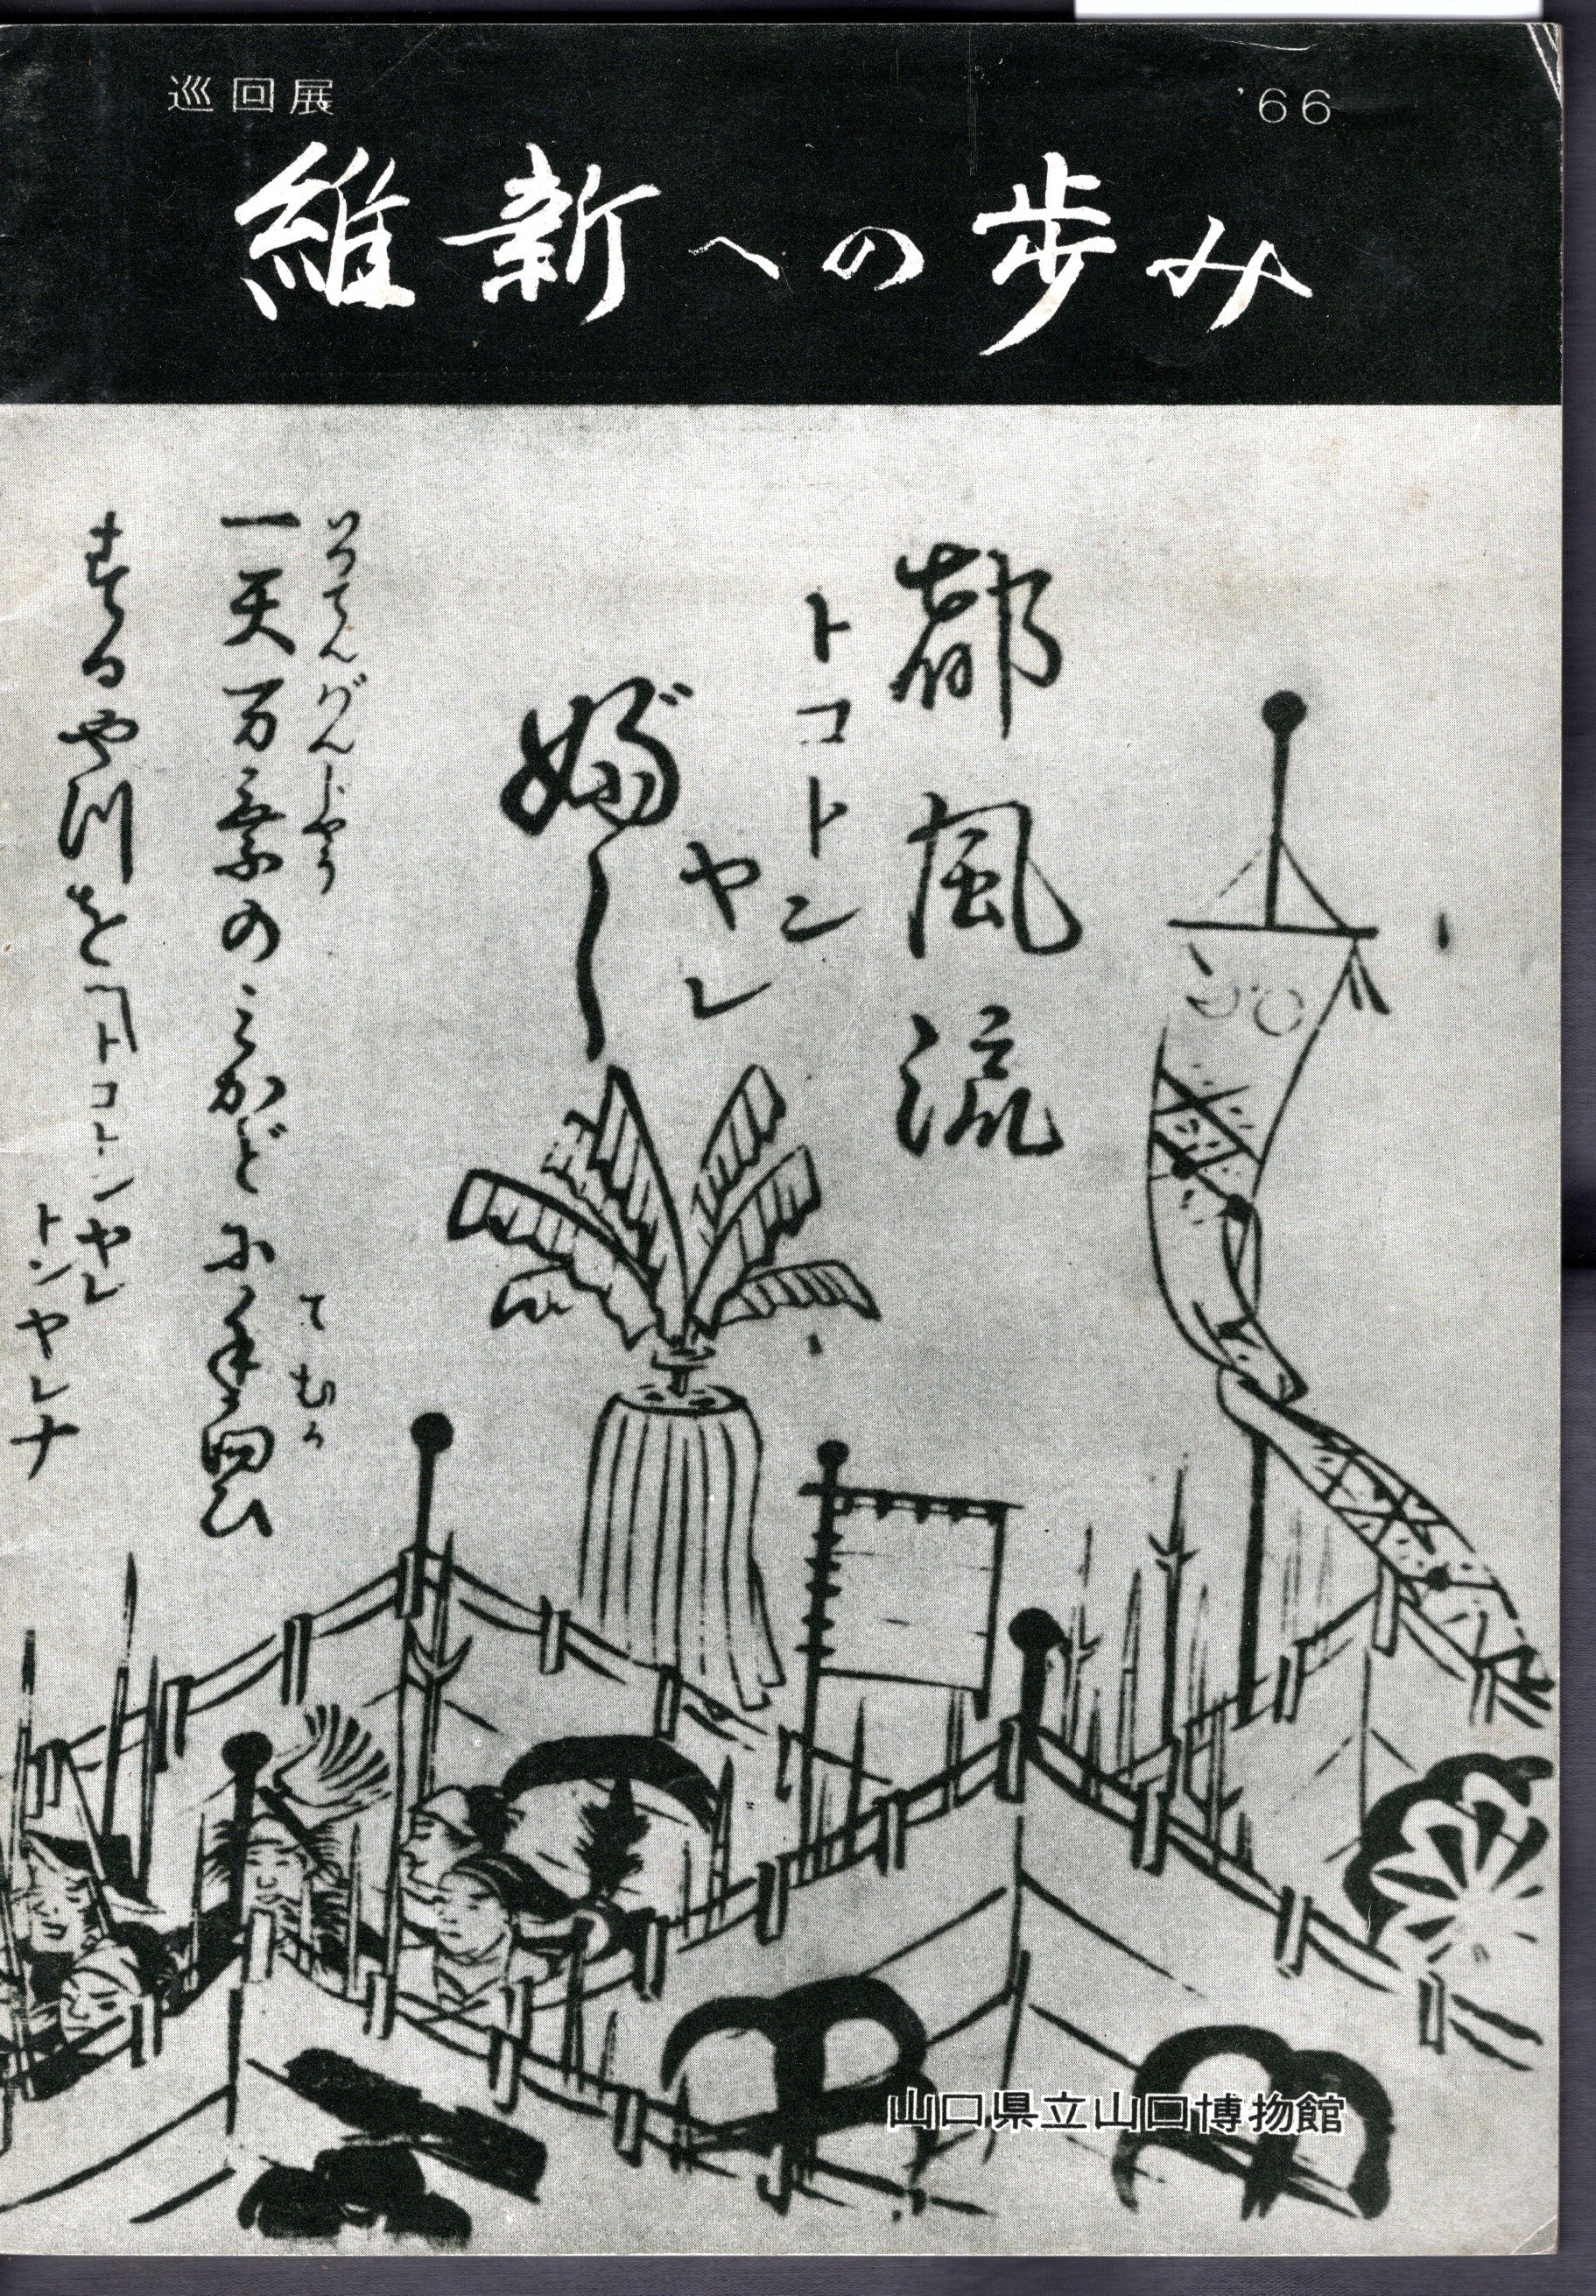 巡回展
'66
維新への歩み
都風流
トコトン
ヤレ
ぶし
いつてんばんじやう
一天万乗のみかどに手向ひ
てむか
するやつを
トコトンヤレ
トンヤレナ
山口県立山口博物館